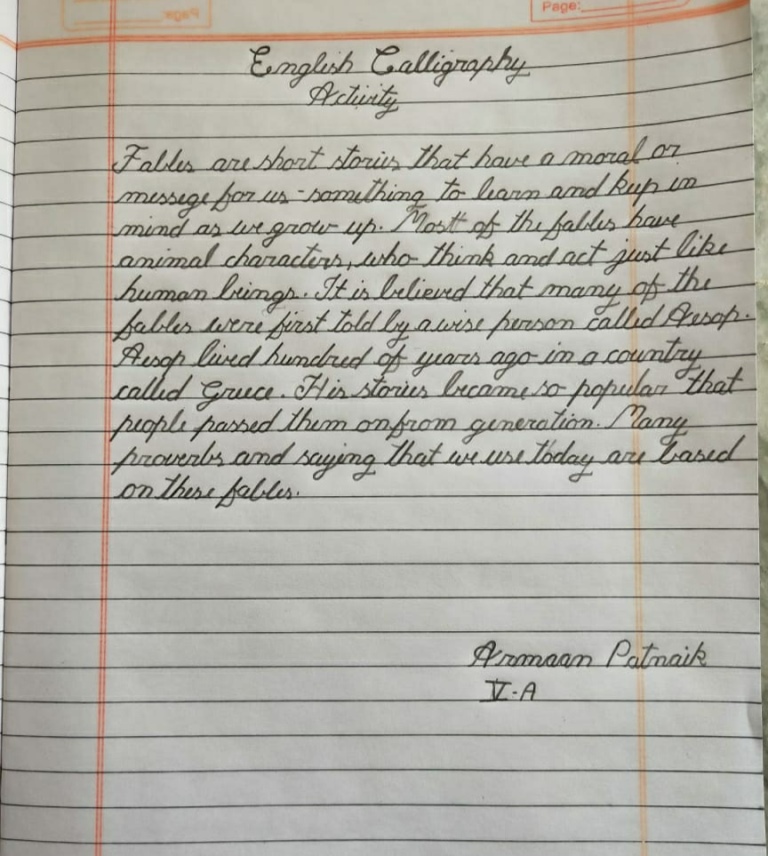 Page:
English Calligraphy
Activity
Fables are short stories that have a moral or
messege for us - something to learn and keep in
mind as we grow up. Most of the fables have
animal characters, who think and act just like
human beings. It is believed that many of the
fables were first told by a wise person called Aesop.
Aesop lived hundred of years ago in a country
called Greece. His stories became so popular that
people passed them on from generation. Many
proverbs and saying that we use today are based
on these fables.
Armaan Patnaik
V-A